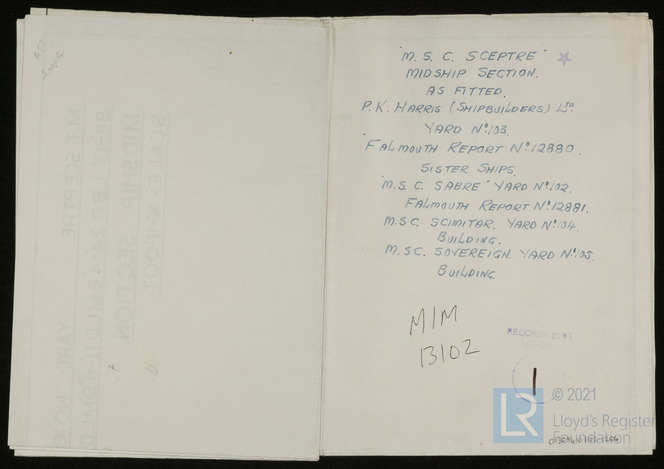 "M. S. C. SCEPTRE"
MIDSHIP SECTION.
AS FITTED.
P. K. HARRIS (SHIPBUILDERS) LTD.
YARD No. 103.
FALMOUTH REPORT No. 12880.
SISTER SHIPS.
"M. S. C. SABRE" YARD No. 102.
FALMOUTH REPORT No. 12881.
M. S. C. SCIMITAR. YARD No. 104.
BUILDING.
M. S. C. SOVEREIGN. YARD No. 105.
BUILDING.
M/M
13102
RECORDS
1
© 2021
LR
Lloyd's Register
Foundation
MIDSHIP SECTION
M.T. SCEPTRE
YARD